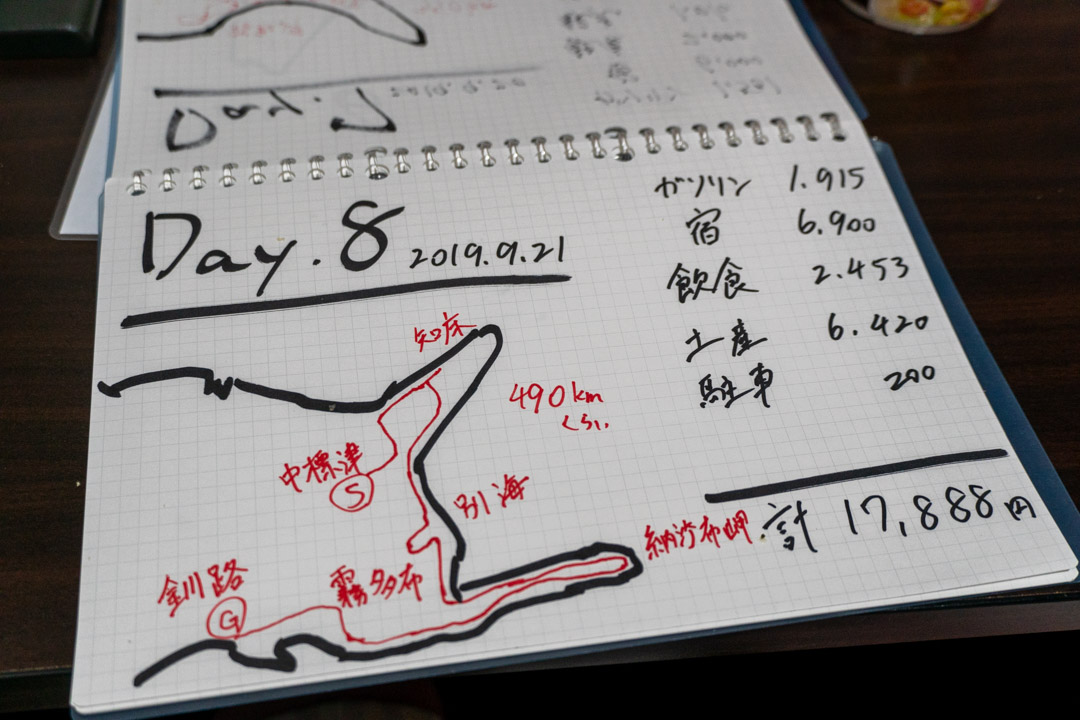 Day.7
Day.8 2019.9.21
ガソリン 1.915
宿 6.900
飲食 2.453
土産 6.420
駐車 200
計 17,888円
知床
490km
くらい
中標津
S
別海
納沙布岬
霧多布
釧路
G